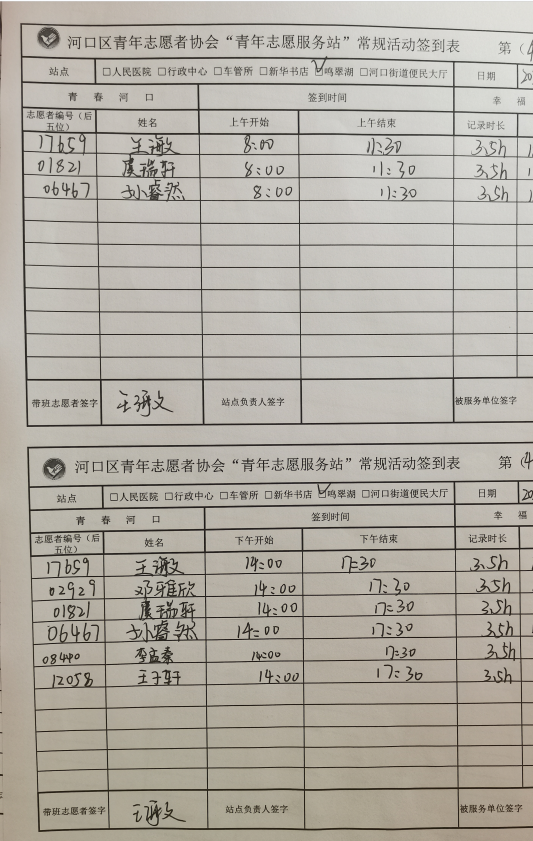 河口区青年志愿者协会“青年志愿服务站”常规活动签到表 第（4
站点 □人民医院 □行政中心 □车管所 □新华书店 ☑鸣翠湖 □河口街道便民大厅 日期 20
青春河口 签到时间 幸福
志愿者编号（后五位） 姓名 上午开始 上午结束 记录时长
17659 8:00 11:30 3.5h
01821 虞瑞轩 8:00 11:30 3.5h
06467 孙睿然 8:00 11:30 3.5h
带班志愿者签字 站点负责人签字 被服务单位签字
河口区青年志愿者协会“青年志愿服务站”常规活动签到表 第（4
站点 □人民医院 □行政中心 □车管所 □新华书店 ☑鸣翠湖 □河口街道便民大厅 日期 20
青春河口 签到时间 幸福
志愿者编号（后五位） 姓名 下午开始 下午结束 记录时长
17659 14:00 17:30 3.5h
02929 邓雅欣 14:00 17:30 3.5h
01821 虞瑞轩 14:00 17:30 3.5h
06467 孙睿然 14:00 17:30 3.5h
08440 李孟秦 14:00 17:30 3.5h
12058 王子轩 14:00 17:30 3.5h
带班志愿者签字 站点负责人签字 被服务单位签字